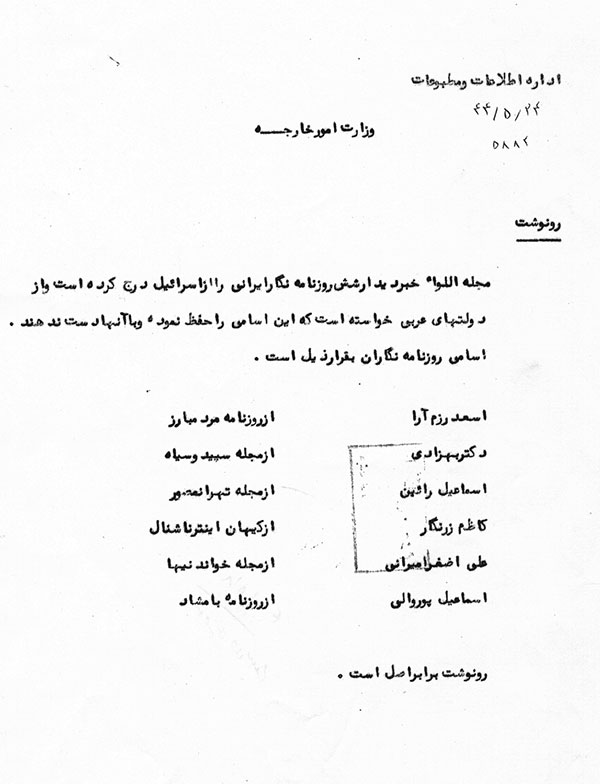 اداره اطلاعات ومطبوعات
۴۴/۵/۲۴
۵۸۸۲
وزارت امورخارجـــه
رونوشت
مجله اللواء خبردیدارشش روزنامه نگارایرانی راازاسرائیل درج کرده است واز
دولتهای عربی خواسته است که این اسامی راحفظ نموده وباآنهادست ندهند .
اسامی روزنامه نگاران بقرارذیل است .
اسعد رزم آرا ازروزنامه مرد مبارز
دکتربهزادی ازمجله سپید وسیاه
اسماعیل رائین ازمجله تهرانمصور
کاظم زرنگار ازکیهان اینترناشنال
علی اضغرامیرانی ازمجله خواندنیها
اسماعیل پوروالی ازروزنامه بامشاد
رونوشت برابراصل است .